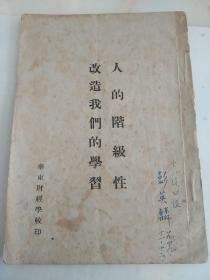 人的階級性
改造我們的學習
華東財經學校印
彭英麟